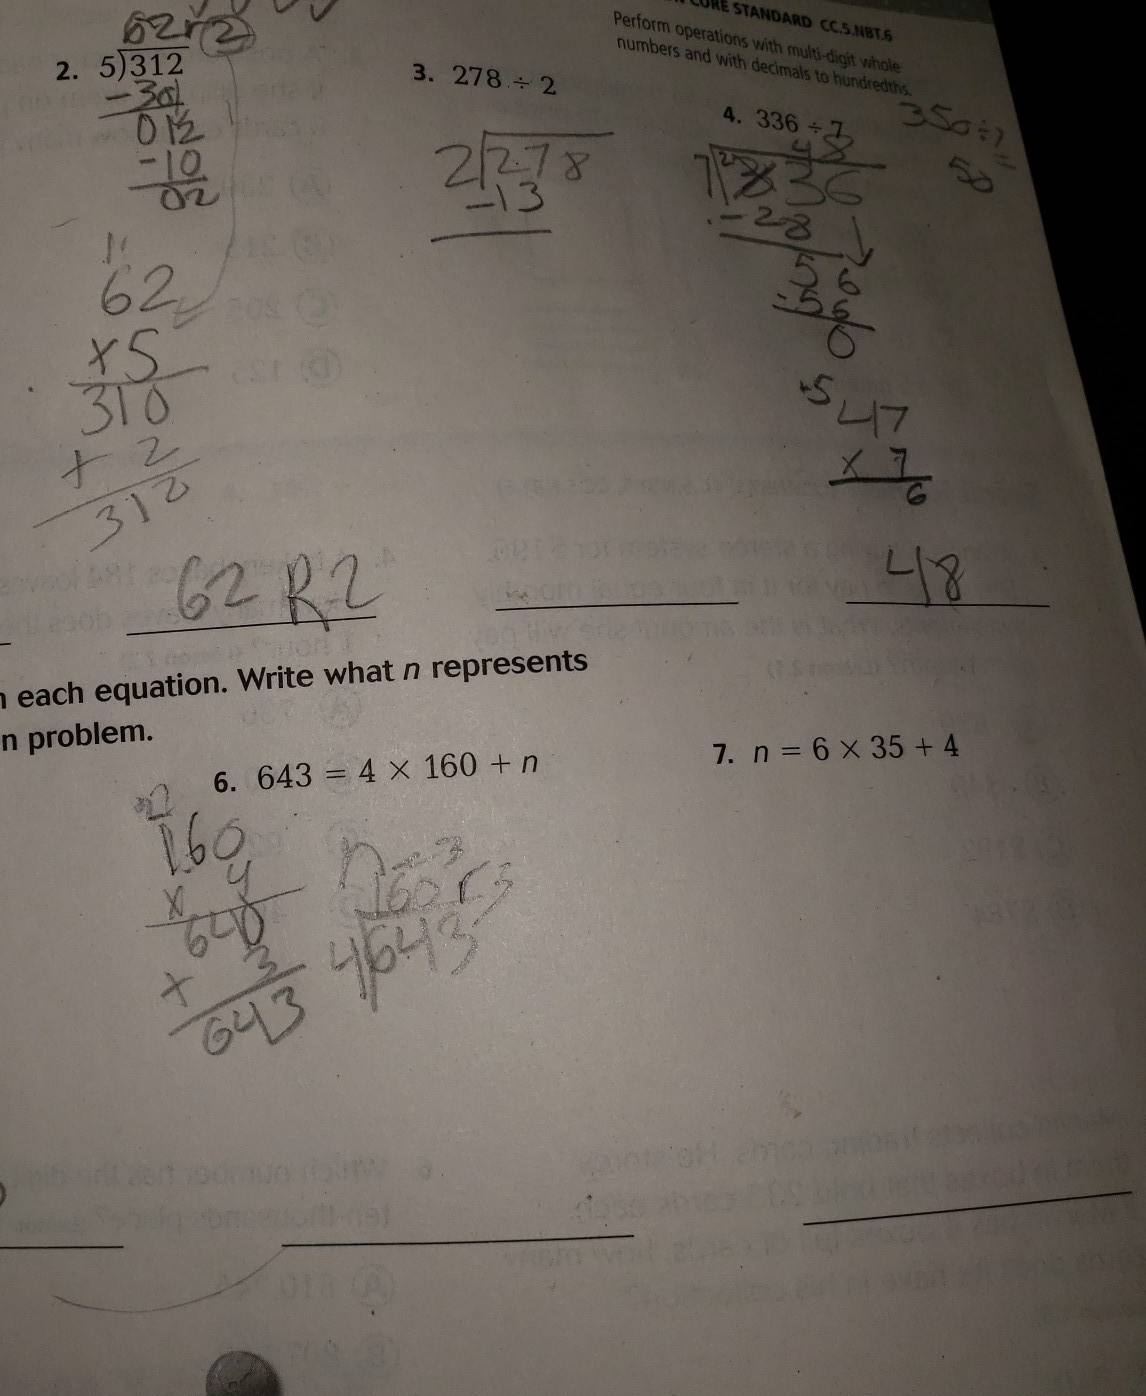 CORE STANDARD CC.5.NBT.6
Perform operations with multi-digit whole
numbers and with decimals to hundredths.
62r2
2. 5)312
-30
012
-10
02
62
x5
310
+ 2
312
62 R2
3. 278 ÷ 2
2)278
-13
4. 336 ÷ 7
350÷7
=
50
48
7)336
-28
56
56
0
+5
47
x 7
6
48
each equation. Write what n represents
n problem.
6. 643 = 4 × 160 + n
160
x 4
640
+ 3
643
n=3
160r3
4)643
7. n = 6 × 35 + 4